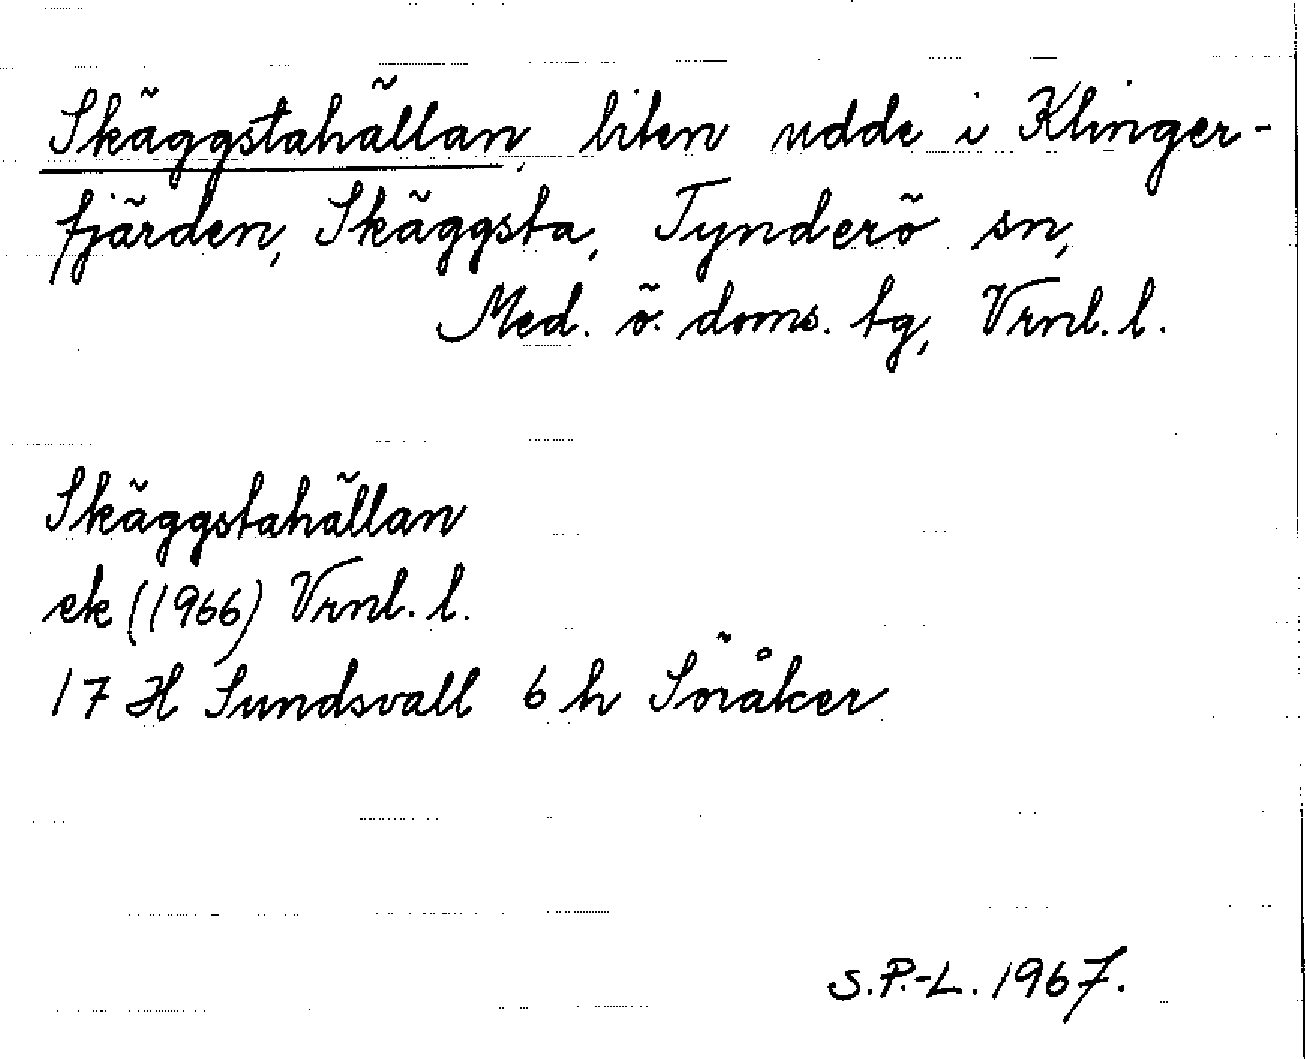 Skäggstahällan, liten udde i Klinger-
fjärden, Skäggsta, Tynderö sn,
Med. ö. doms. tg, Vrnl. l.
Skäggstahällan
ek (1966) Vrnl. l.
17 H Sundsvall 6 h Söråker
S.P.-L. 1967.